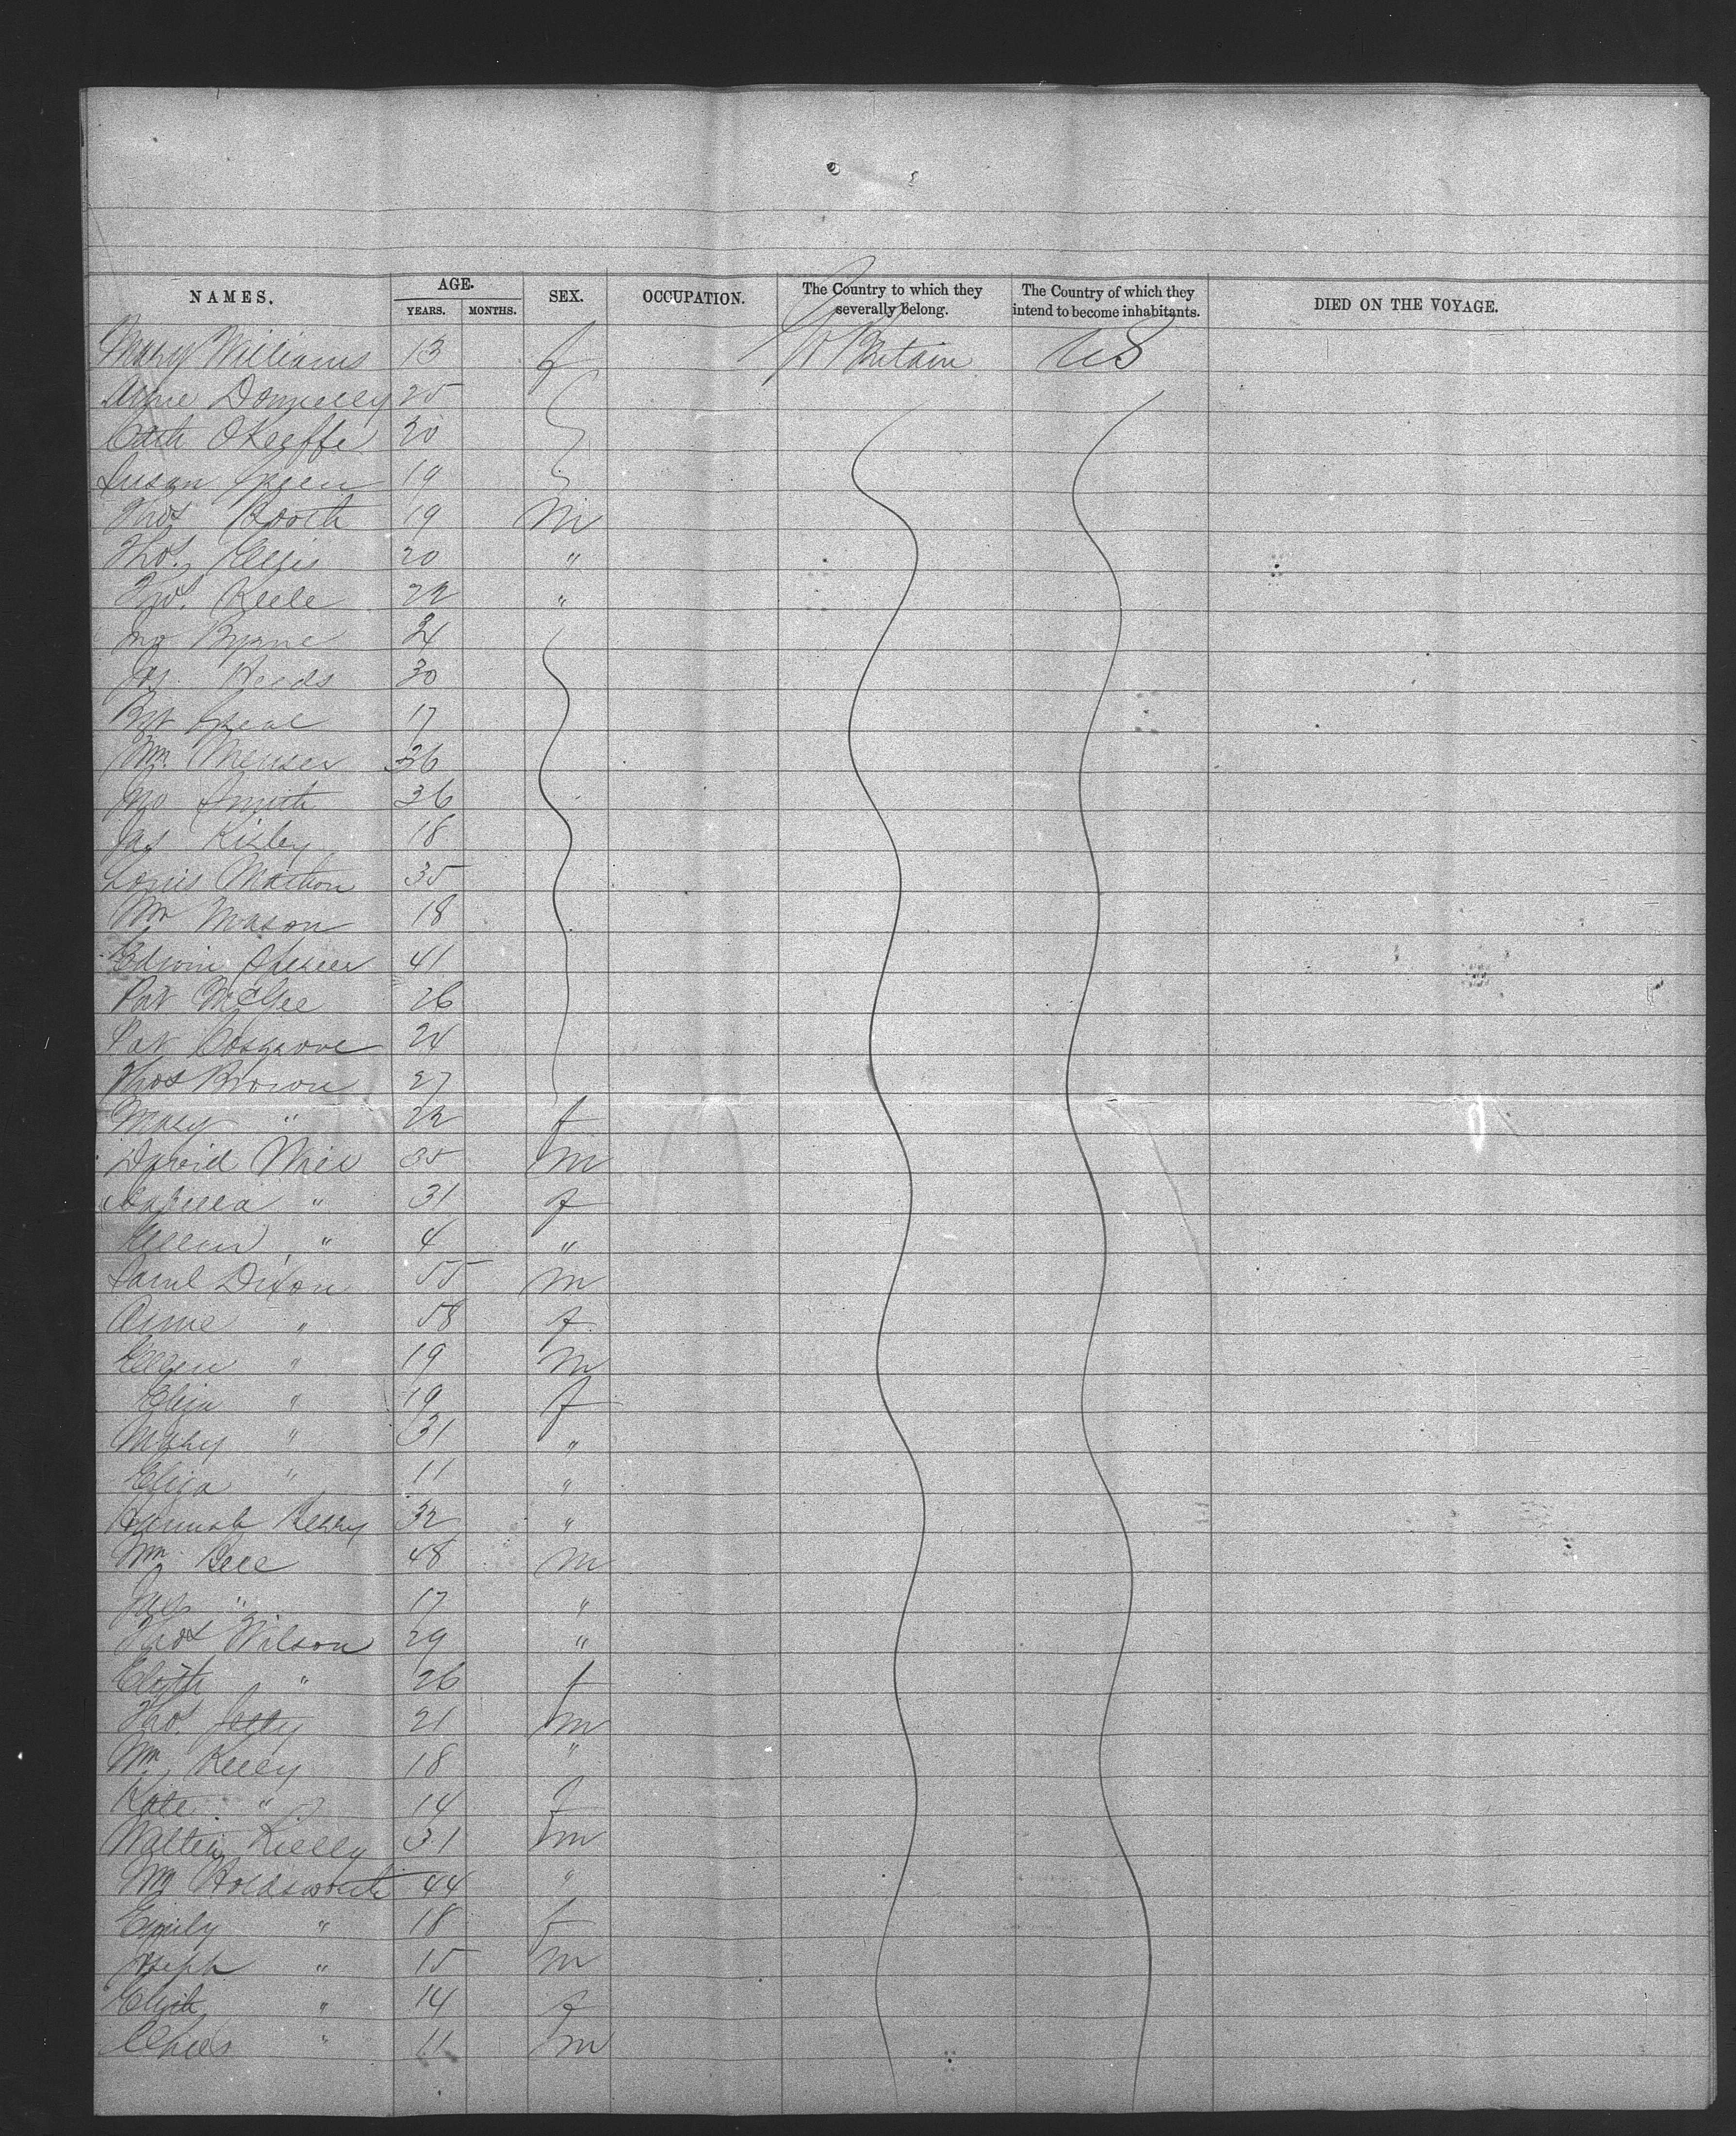 NAMES. AGE. YEARS. MONTHS. SEX. OCCUPATION. The Country to which they severally belong. The Country of which they intend to become inhabitants. DIED ON THE VOYAGE.
Mary Williams 13 f Gt Britain US
Annie Donnelly 25
Cath OKeeffe 20
Susan 19
Thos Booth 19 M
Thos. Ellis 20 "
Thos. Keele 22 "
Jno Byrne 24
Jas. Heeds 30
17
Wm. 36
Jno Smith 36
Jas 18
Louis Mathon 35
Wm Mason 18
Edwin Spicer 41
Pat McGee 26
Pat Cosgrove 24
Thos Brown 27
Mary " 22 f
David 35 M
Isabella " 31 f
Ellen " 4 "
Saml Dixon 55 M
Anne " 58 f
" 19 M
Eliza " 19 f
Mary " 31 "
Eliza " 11 "
Hannah 32 "
Wm. Bell 48 M
Jas " 17 "
Thos Wilson 29 "
Elizth " 26 f
Thos. 21 M
Wm. Kelly 18 "
Kate " 14 f
Walter Kielly 31 M
Wm Holdsworth 44 "
Emily " 18 f
Joseph " 15 M
Elizth " 14 f
Chas " 11 M